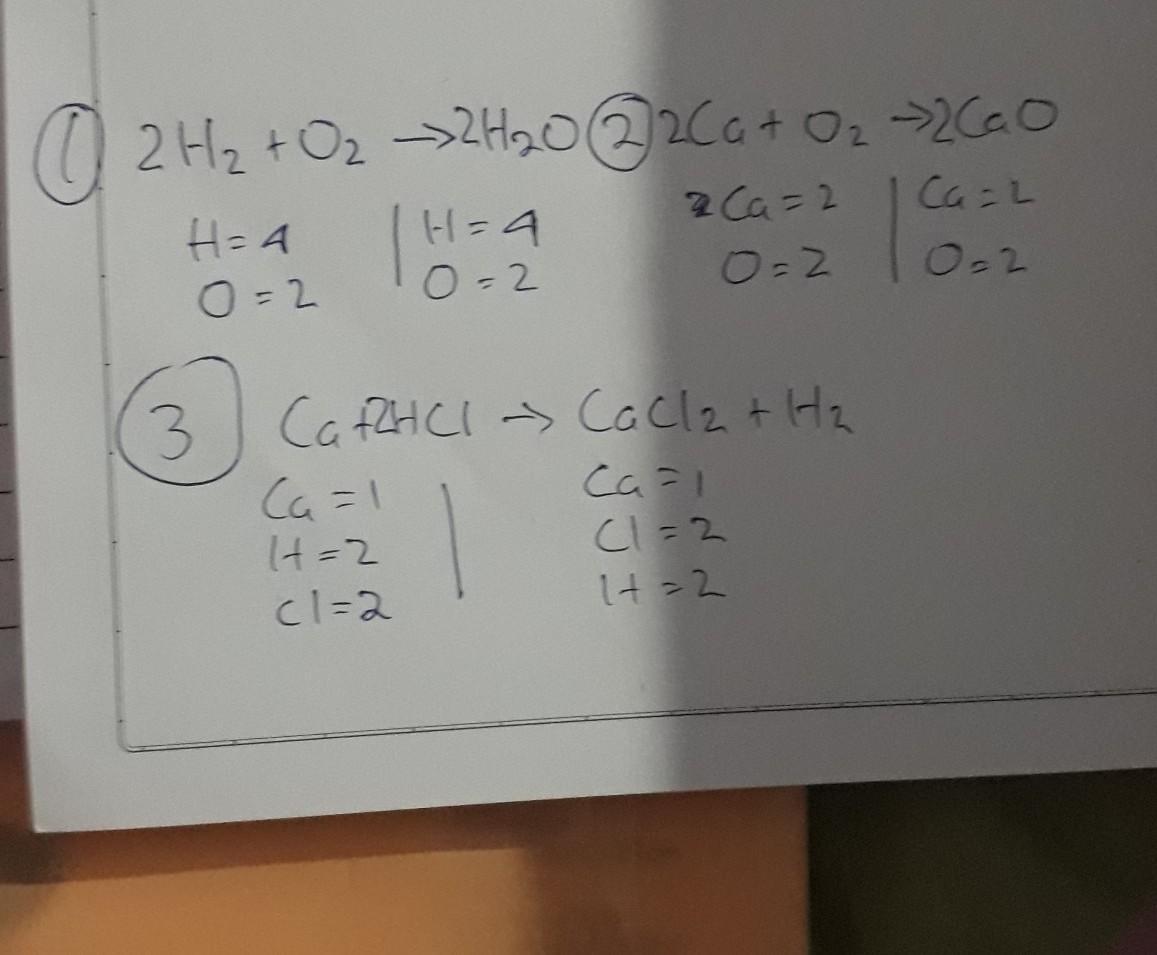 ① 2H2 + O2 → 2H2O ② 2Ca + O2 → 2CaO
H = 4 | H = 4 2Ca = 2 | Ca = 2
O = 2 | O = 2 O = 2 | O = 2
③ Ca + 2HCl → CaCl2 + H2
Ca = 1 | Ca = 1
H = 2 | Cl = 2
Cl = 2 | H = 2